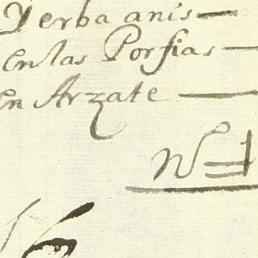 Yerba anis
En las Porfias
En Arzate
N = 1